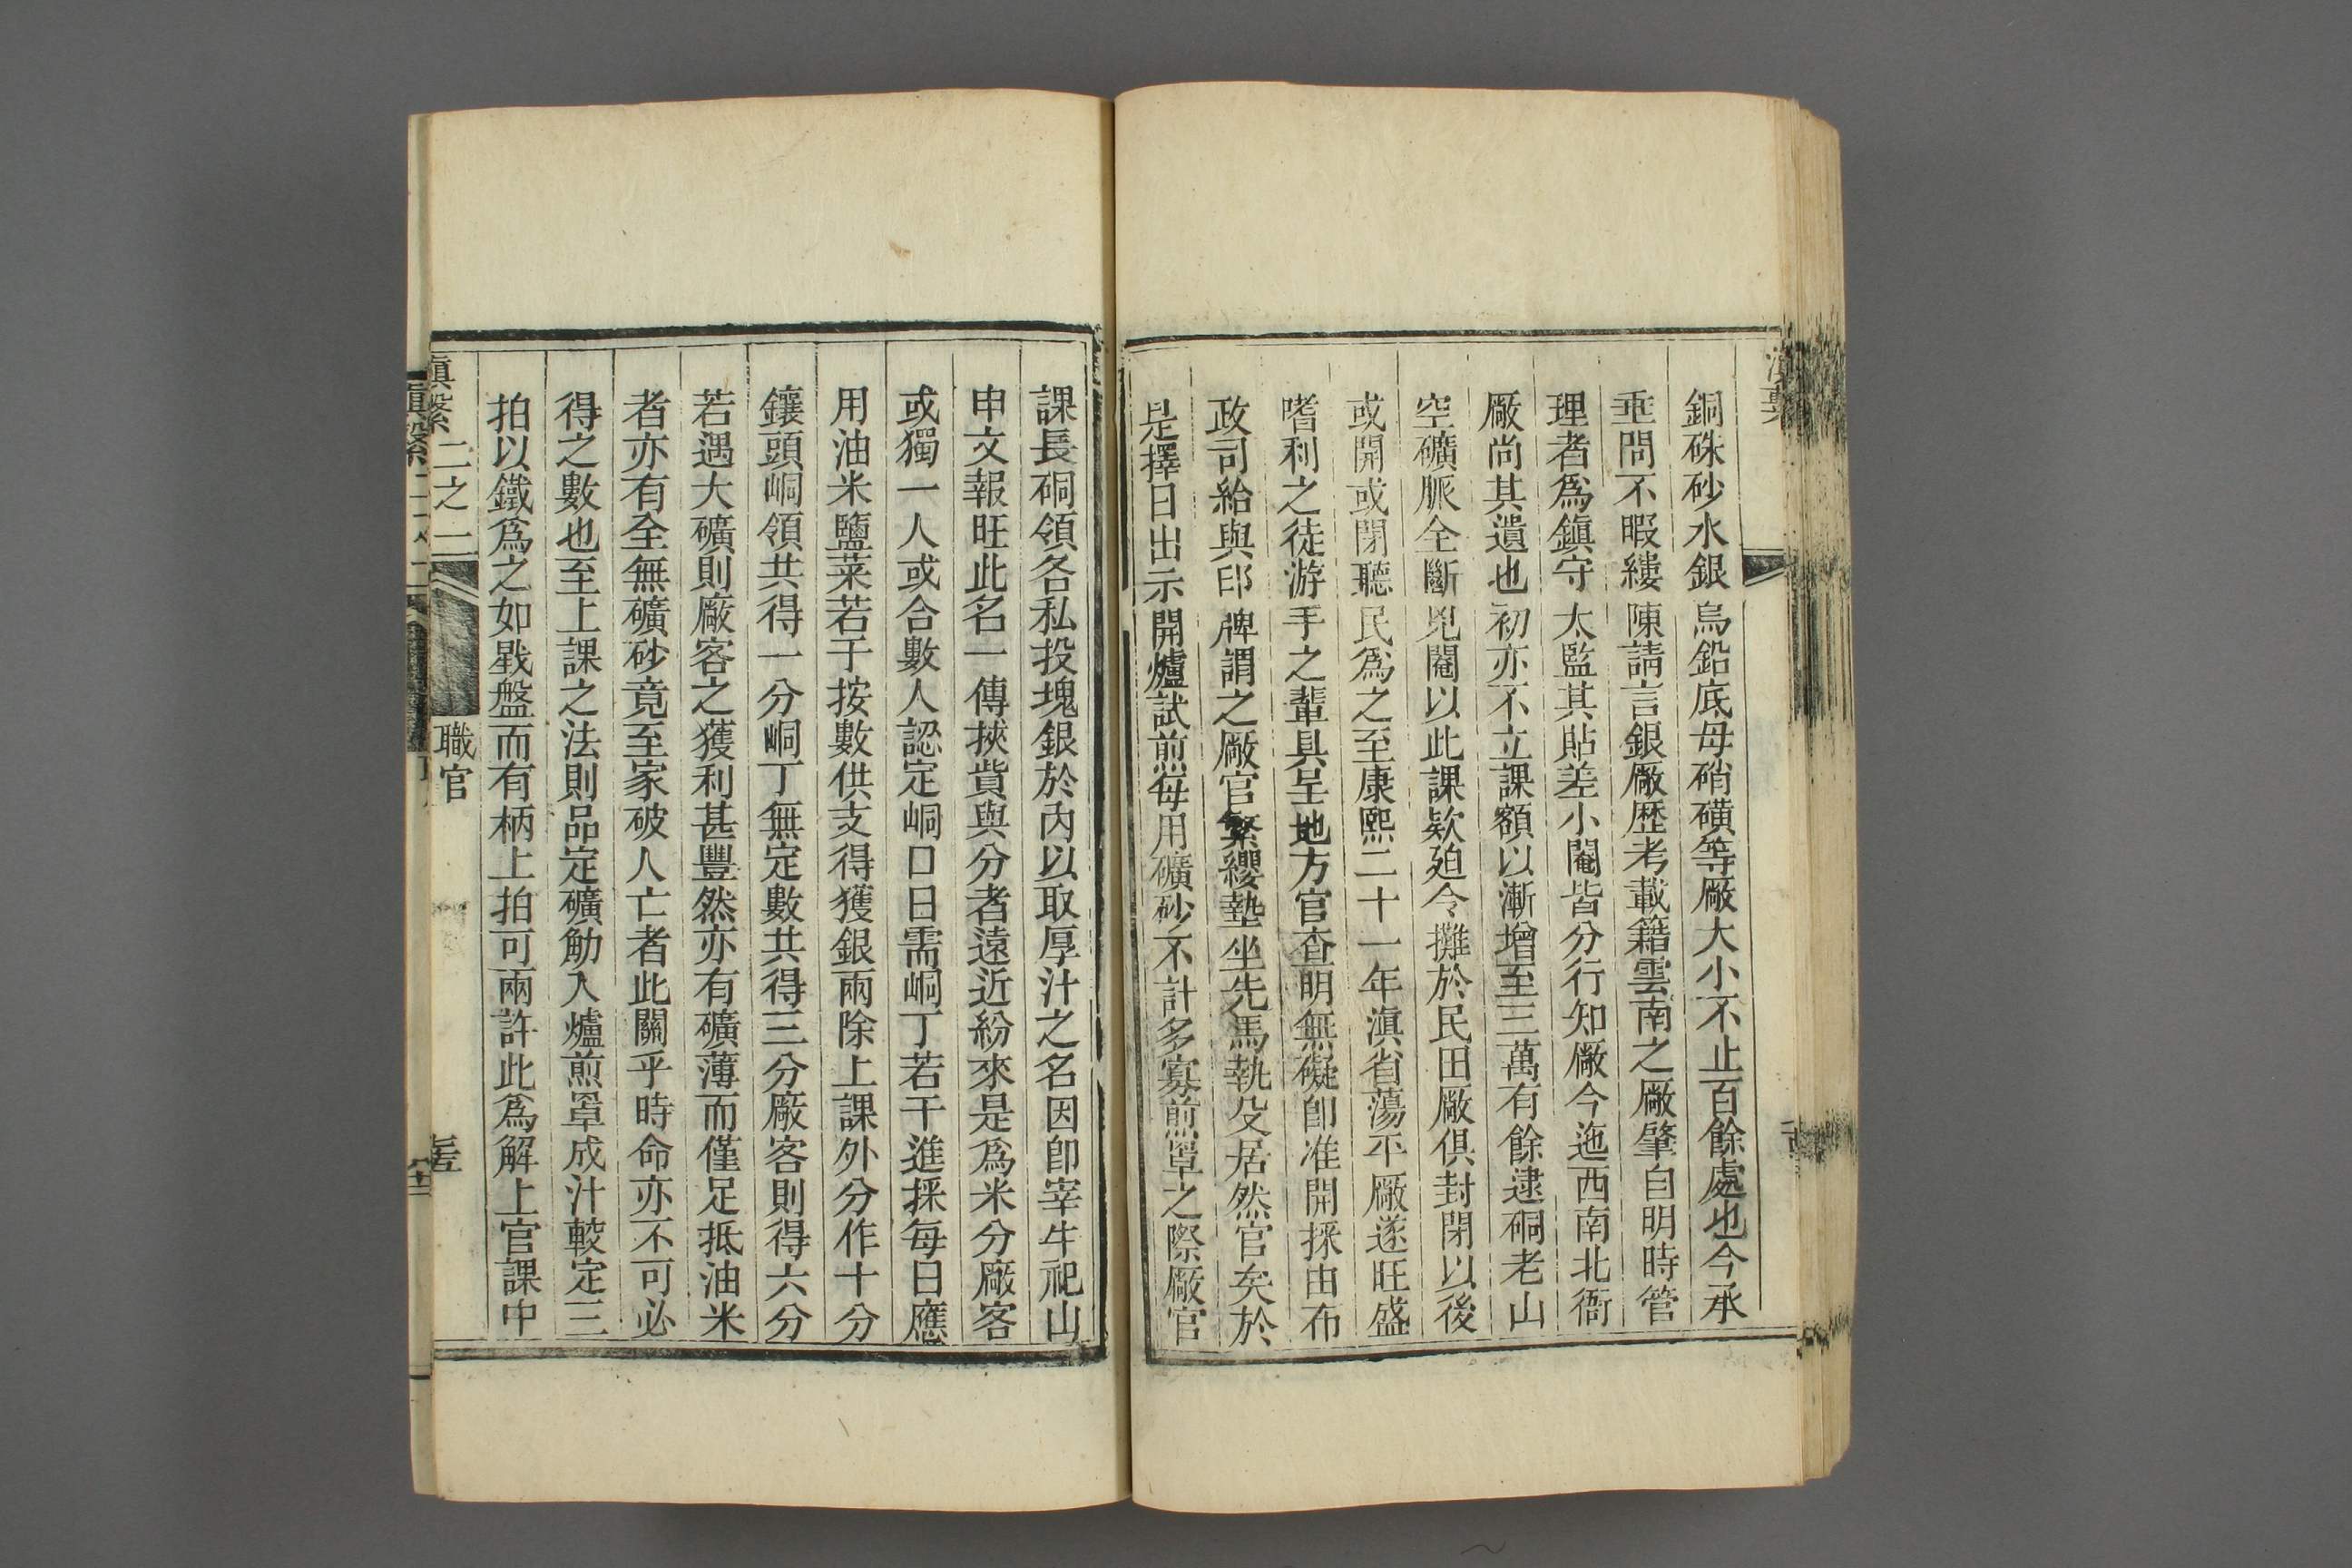 銅硃砂水銀烏鉛底母硝磺等廠大小不止百餘處也今承
垂問不暇縷陳請言銀廠歴考載籍雲南之廠肇自明時管
理者爲鎮守太監其貼差小閹皆分行知廠今迤西南北衙
廠尚其遺也初亦不立課額以漸增至三萬有餘逮硐老山
空礦脈全斷兇閹以此課欵廹令攤於民田廠俱封閉以後
或開或閉聽民爲之至康熙二十一年滇省蕩平廠遂旺盛
嗜利之徒游手之輩具呈地方官查明無礙卽准開採由布
政司給與印牌謂之廠官繁纓墊坐先馬執殳居然官矣於
是擇日出示開爐試煎每用礦砂不計多寡煎罩之際廠官
課長硐領各私投塊銀於內以取厚汁之名因卽宰牛祀山
申文報旺此名一傳挾貲與分者遠近紛來是爲米分廠客
或獨一人或合數人認定峒口日需峒丁若干進採每日應
用油米鹽菜若干按數供支得獲銀兩除上課外分作十分
鑲頭峒領共得一分峒丁無定數共得三分廠客則得六分
若遇大礦則廠客之獲利甚豐然亦有礦薄而僅足抵油米
者亦有全無礦砂竟至家破人亡者此關乎時命亦不可必
得之數也至上課之法則品定礦觔入爐煎罩成汁較定三
拍以鐵爲之如戥盤而有柄上拍可兩許此爲解上官課中
滇繫 二之二 職官